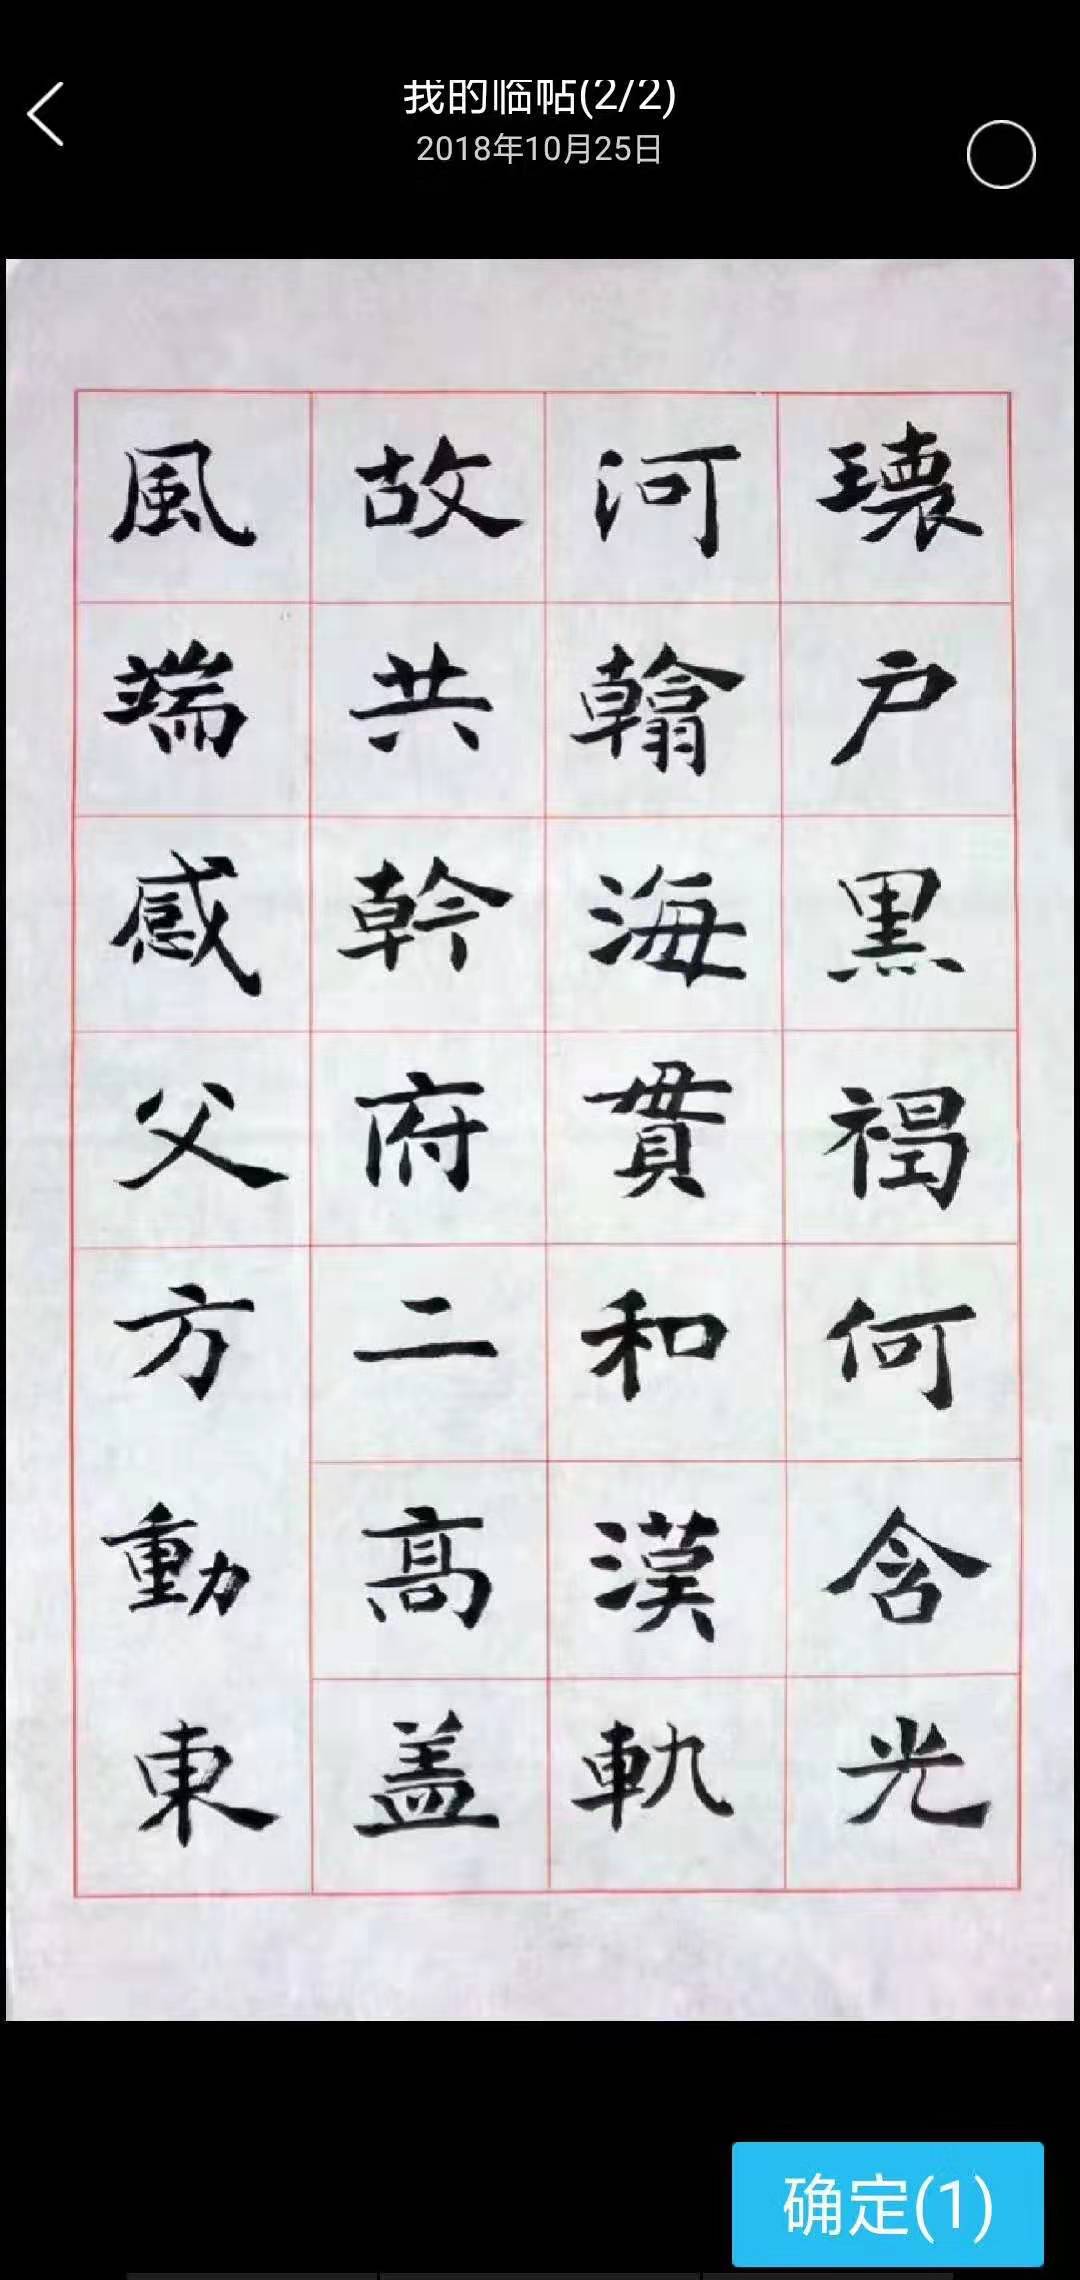 我的临帖(2/2)
2018年10月25日
瓌户黑褐何含光
河翰海贯和漢軌
故共幹府二高盖
風端感父方動東
确定(1)